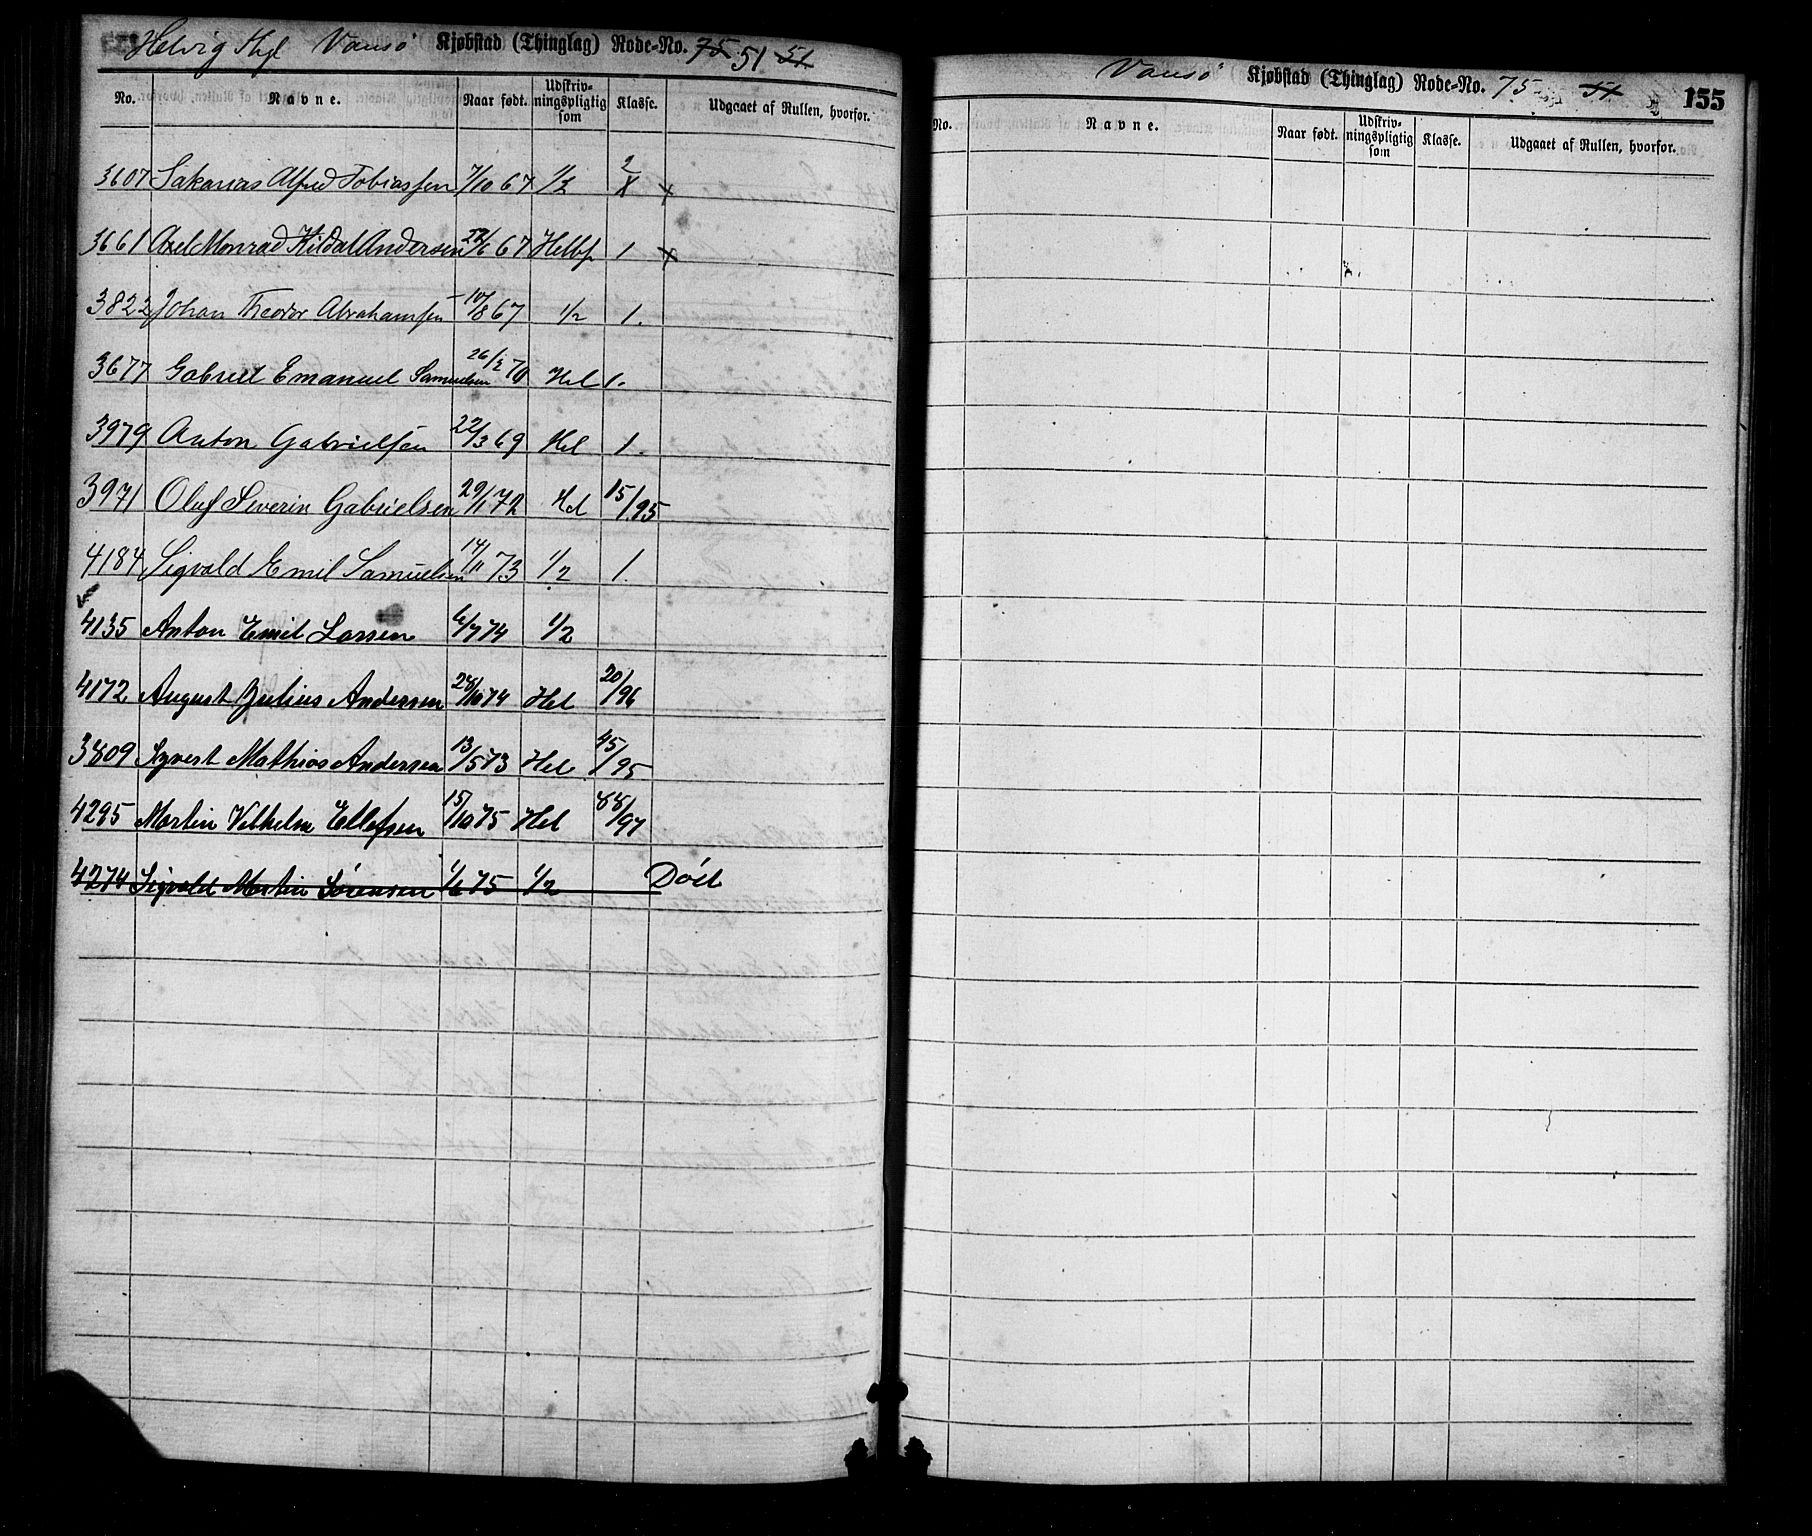 Helvig Vansø Kjøbstad (Thinglag) Rode-No. 75 51 51
No. Navne. Naar født. Udskriv-ningspligtig som Klasse. Udgaaet af Rullen, hvorfor.
3607 Sakarias Alfred Tobiassen 7/10 67 1/2 2 X x
3661 Axel Monrad Kildal Andersen 22/6 67 1. x
3822 Johan Theodor Abrahamsen 10/8 67 1/2 1.
3677 Gabriel Emanuel Samuelsen 26/2 70 Hel 1.
3979 Anton Gabrielsen 22/3 69 Hel 1.
3971 Oluf Severin Gabrielsen 29/1 72 Hel 15/95
4184 Sigvald Emil Samuelsen 14/11 73 1/2 1.
4135 Anton Emil Larsen 6/7 74 1/2
4172 August Julius Andersen 28/10 74 Hel 20/96
3809 Syvert Mathias Andersen 13/5 73 Hel 45/95
4295 Martin Vilhelm Ellefsen 15/10 75 Hel 88/97
4274 Sigvald Martin Sørensen 1/6 75 1/2 Død
Vansø Kjøbstad (Thinglag) Rode-No. 75 51 155
No. Navne. Naar født. Udskriv-ningspligtig som Klasse. Udgaaet af Rullen, hvorfor.